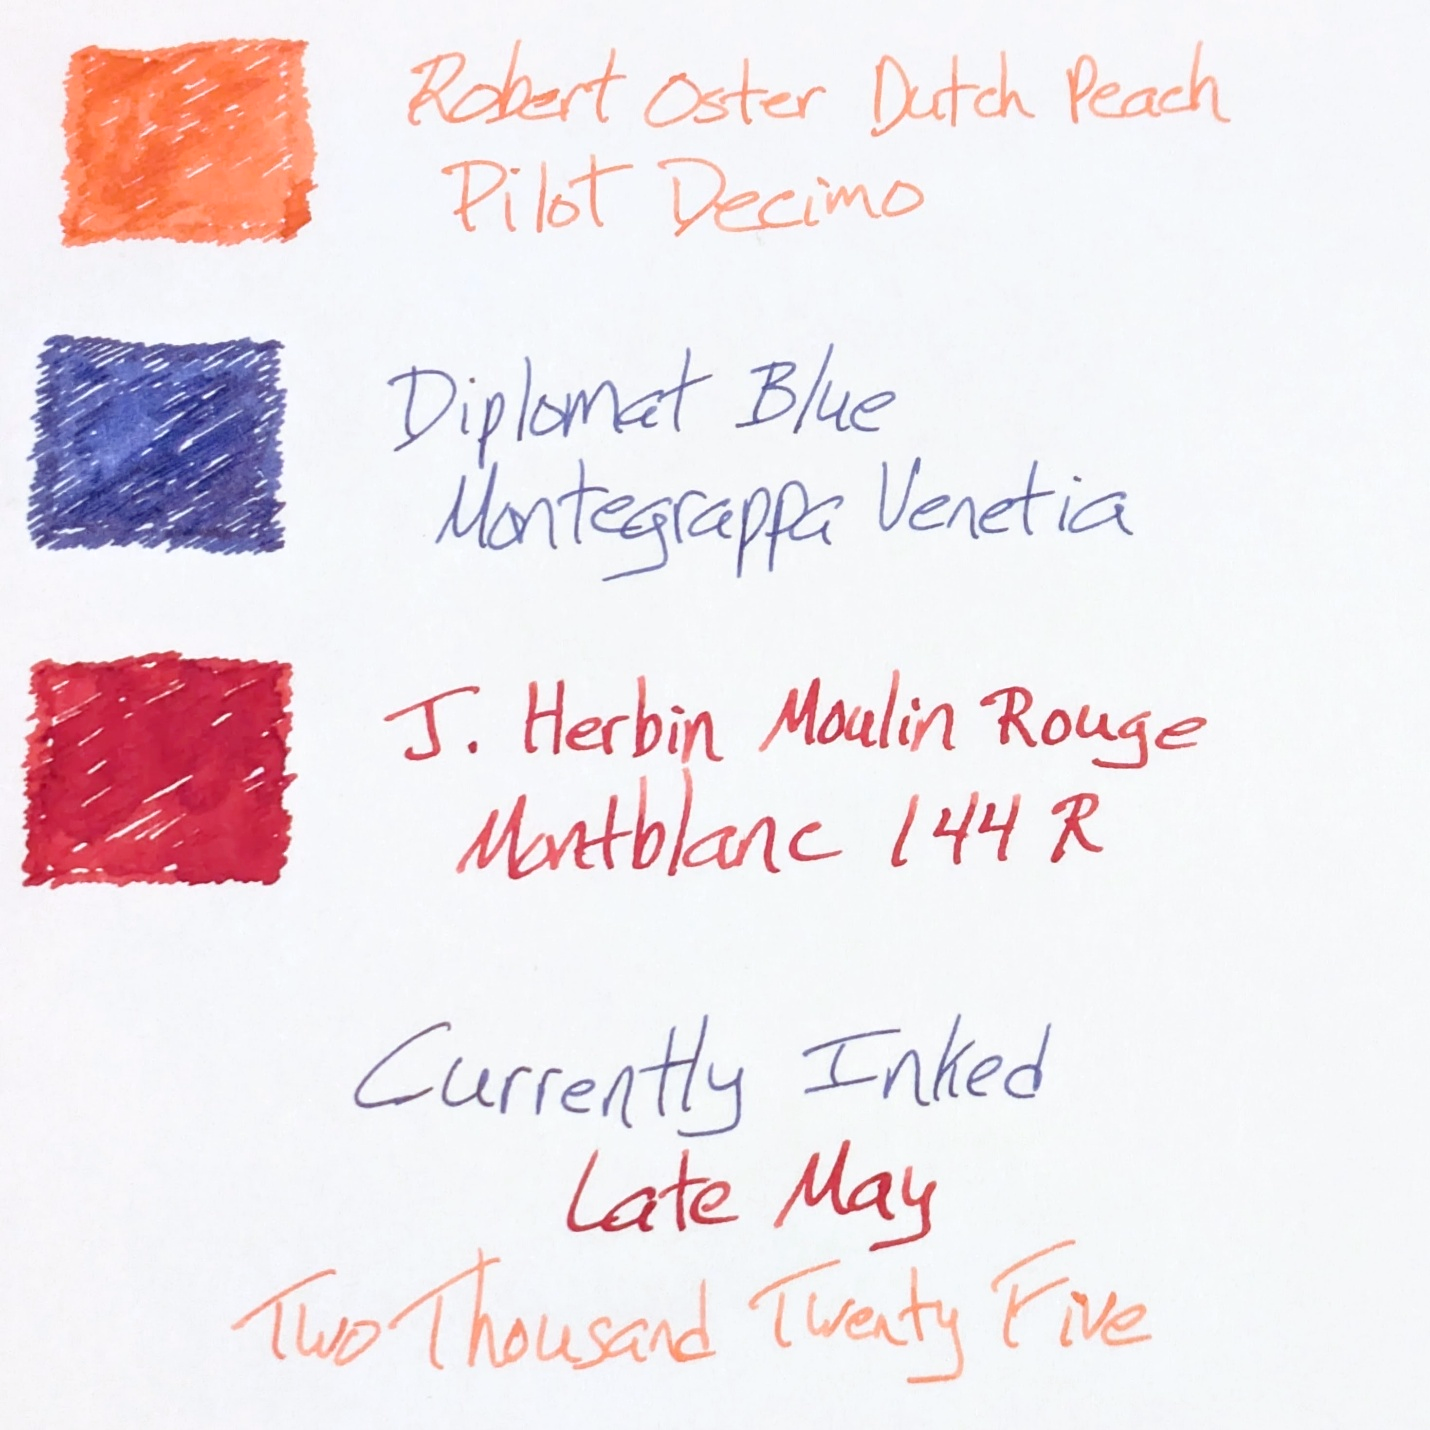 Robert Oster Dutch Peach
Pilot Decimo
Diplomat Blue
Montegrappa Venetia
J. Herbin Moulin Rouge
Montblanc 144 R
Currently Inked
Late May
Two Thousand Twenty Five